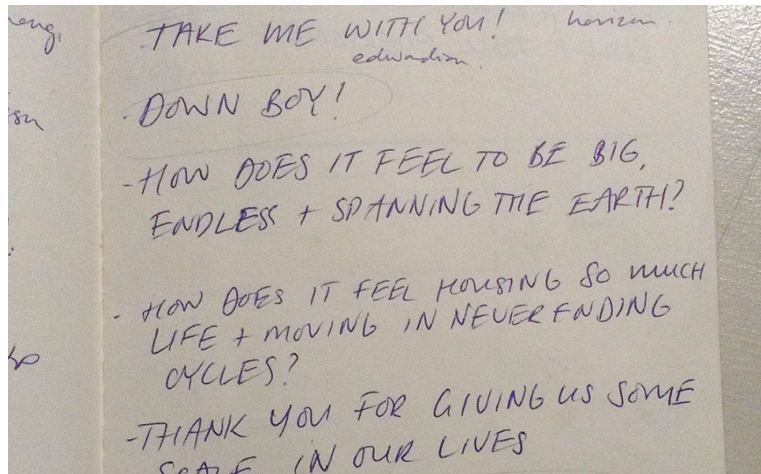 - TAKE ME WITH YOU! horizon.
edwardian.
- DOWN BOY!
- HOW DOES IT FEEL TO BE BIG,
ENDLESS + SPANNING THE EARTH?
- HOW DOES IT FEEL HOUSING SO MUCH
LIFE + MOVING IN NEVER ENDING
CYCLES?
- THANK YOU FOR GIVING US SOME
SCALE IN OUR LIVES